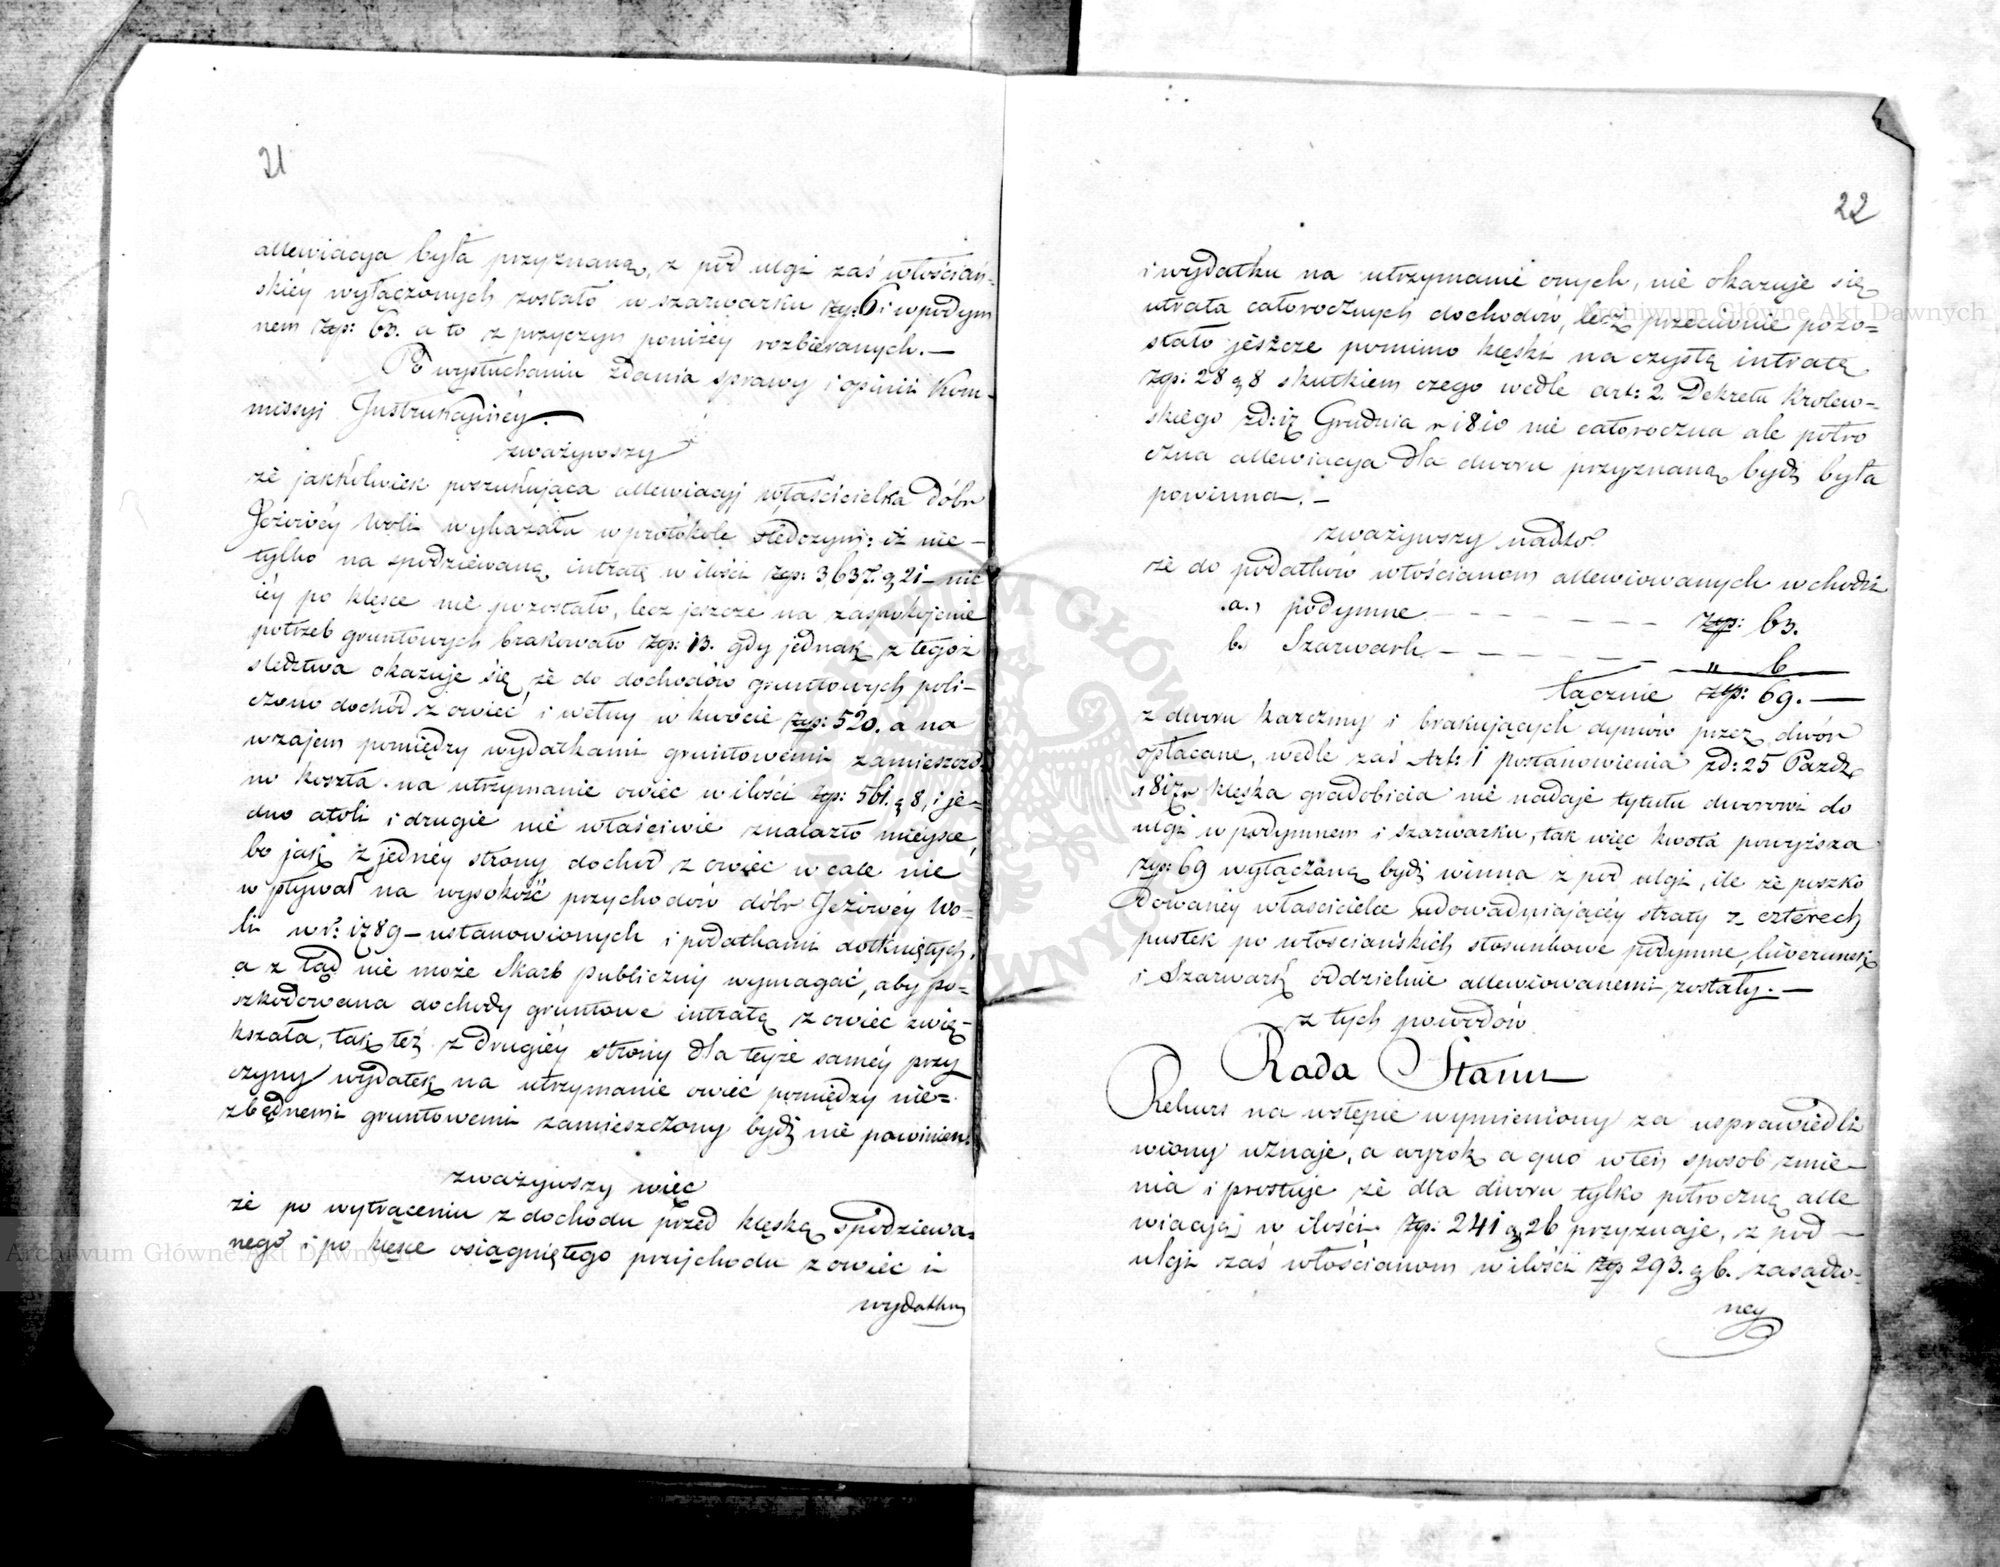 21
allewiacyja była przyznaną, z pod ulgi zaś włościań-
skiéy wyłączonych zostało w szarwarku złp: 6 i w podym
nem złp: 63. a to z przyczyn poniżéy rozbieranych.—
Po wysłuchaniu Zdania sprawy i opinii Kom-
missyi Instrukcyjnéy.
zważywszy
że jakkolwiek poszukująca allewiacyi właścicielka dóbr
Jeżiovéy Woli wykazała w protokole śledczym: iż nie-
tylko na spodziewaną intratę w ilości złp: 3,637. g 21— nic
iéy po klęsce nie pozostało, lecz jeszcze na zaspokojenie
potrzeb gruntowych brakowało złp: 13. gdy jednak z tegoż
śledztwa okazuje się że do dochodów gruntowych poli-
czono dochód z owiec i wełny w kwocie złp: 520. a na
wzajem pomiędzy wydatkami gruntowemi zamieszczo-
no koszta na utrzymanie owiec w ilości złp: 561. g 8, i je-
dno atoli i drugie nie właściwie znalazło mieysce,
bo jak z jednéy strony dochód z owiec wcale nie
wpływał na wysokość przychodów dóbr Jeżiovéy Wo-
li w r: 1789— ustanowionych i podatkami dotkniętych,
a z tąd nie może Skarb publiczny wymagać, aby po-
szkodowana dochody gruntowe intratą z owiec zwię-
kszała, tak też z drugiéy strony dla teyże saméy przy
czyny wydatek na utrzymanie owiec pomiędzy nie-
zbędnemi gruntowemi zamieszczony bydź nie powinien.
zważywszy więc
że po wytrąceniu z dochodu przed klęską spodziewa-
nego i po klęsce osiągniętego przychodu z owiec i
wydatku
22
i wydatku na utrzymanie onych, nie okazuje się
utrata całorocznych dochodów, lecz przeciwnie pozo-
stało jeszcze pomimo klęski na czystą intratę
złp: 28 g 8 skutkiem czego wedle art: 2. Dekretu Krolew-
skiego z d: 17 Grudnia r 1810 nie całoroczna ale półro
czna allewiacyja dla dworu przyznaną bydź była
powinna.—
zważywszy nadto
że do podatków włościanom allewiowanych wchodzi
a., podymne — — — — — — złp: 63.
b. Szarwark — — — — — — „ 6
łącznie złp: 69.—
z dworu karczmy i brakujących dymów przez dwór
opłacane, wedle zaś Art: 1 postanowienia z d: 25 Pazdz
1817 r klęska gradobicia nie nadaje tytułu dworowi do
ulgi w podymnem i szarwarku, tak więc kwota powyższa
złp: 69 wyłączoną bydź winna z pod ulgi, ile że poszko
dowanéy właścicielce udowadniającéy straty z czterech
pustek po włościańskich stosunkowe podymne, liwerunek
i Szarwark oddzielnie allewiowanemi zostały.—
z tych powodów
Rada Stanu
Rekurs na wstępie wymieniony za usprawiedli
wiony uznaje, a wyrok a quo w ten sposób zmie-
nia i prostuje że dla dworu tylko półroczną alle
wiacyją w ilości złp: 241 g 26 przyznaje, z pod—
ulgi zaś włościanom w ilości złp 293. g 6. zasądzo-
ney
Archiwum Główne Akt Dawnych
Archiwum Główne Akt Dawnych
ARCHIWUM GŁÓWNE AKT DAWNYCH